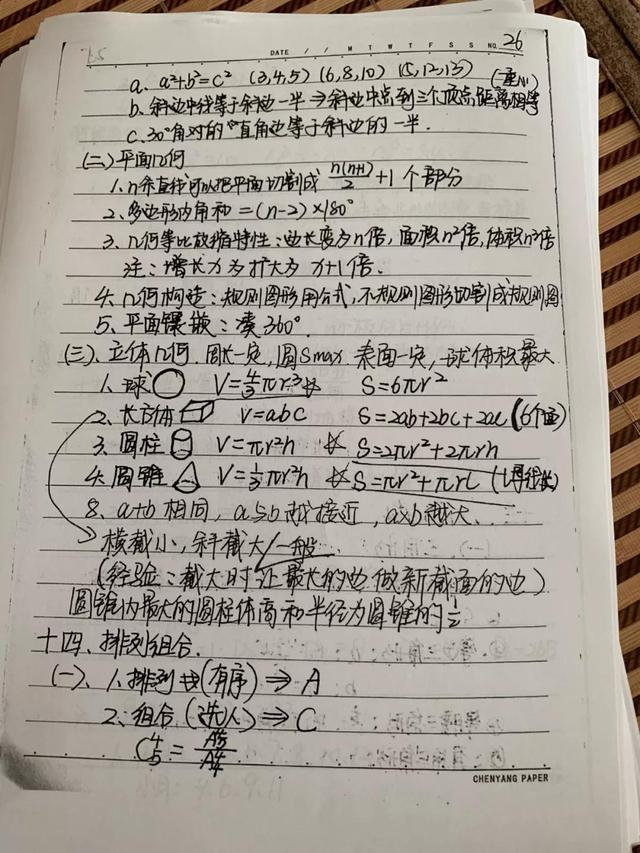 DATE / / M T W T F S S NO. 26
a. a²+b²=c² (3,4,5) (6,8,10) (5,12,13)
b. 斜边中线等于斜边一半→斜边中点到三个顶点距离相等
c. 30°角对的直角边等于斜边的一半.
(二)平面几何
1. n条直线可以把平面切割成 n(n+1)/2 +1 个部分
2. 多边形内角和=(n-2)×180°
3. 几何等比放缩特性:边长变为n倍,面积n²倍,体积n³倍
注:增长 为扩大为 +1倍.
4. 几何构造:规则图形用公式,不规则图形切割成规则图
5. 平面镶嵌:凑360°
(三)、立体几何.周长一定,圆Smax 表面一定,球体积最大
1. 球 V=4/3πr³ S=6πr²
2. 长方体 V=abc S=2ab+2bc+2ac (6个面)
3. 圆柱 V=πr²h S=2πr²+2πrh
4. 圆锥 V=1/3πr²h S=πr²+πrL (L母线长)
8. a+b相同,a与b越接近,a×b越大.
横截小,斜截大/一般
(经验:截大时让最长的边做新截面的边)
圆锥内最大的圆柱体高和半径为圆锥的1/2
十四、排列组合.
(一)、1. 排列 (有序)⇒A
2. 组合(选人)⇒C
C⁴₅=
CHENYANG PAPER